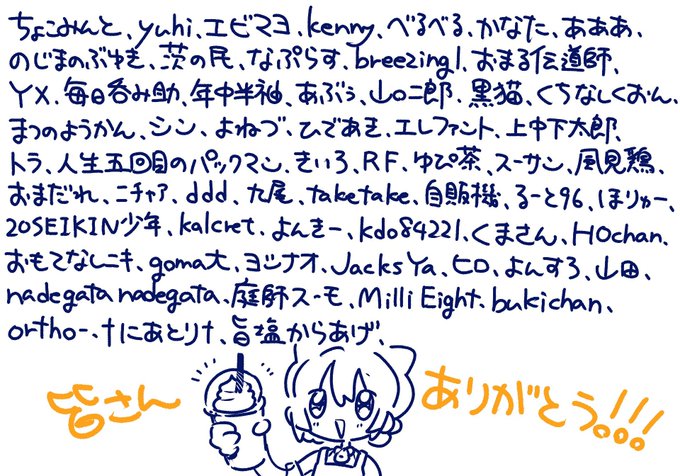 ちょこみんと、yuhi、エビマヨ、kenny、べるべる、かなた、あああ、
のじまのぶゆき、茨の民、なぷらす、breezing1、おまる伝道師、
YX、毎日呑み助、年中半袖、あぶぅ、山口二郎、黒猫、くちなしくおん、
まつのようかん、シン、よねづ、ひであき、エレファント、上中下太郎、
トラ、人生五回目のパックマン、きいろ、RF、ゆぴ茶、スーサン、風見鶏、
おまだれ、ニチャア、ddd、九尾、taketake、自販機、るーと96、ほりゅー、
20SEIKIN少年、kalcret、よんきー、kdo84221、くまさん、HOchan、
おもてなしニキ、goma大、ヨシナオ、JacksYa、ヒロ、よんすろ、山田、
nadegata nadegata、庭師スーモ、Milli Eight、bukichan、
ortho-、†にあとり†、旨塩からあげ、
皆さん ありがとう!!!